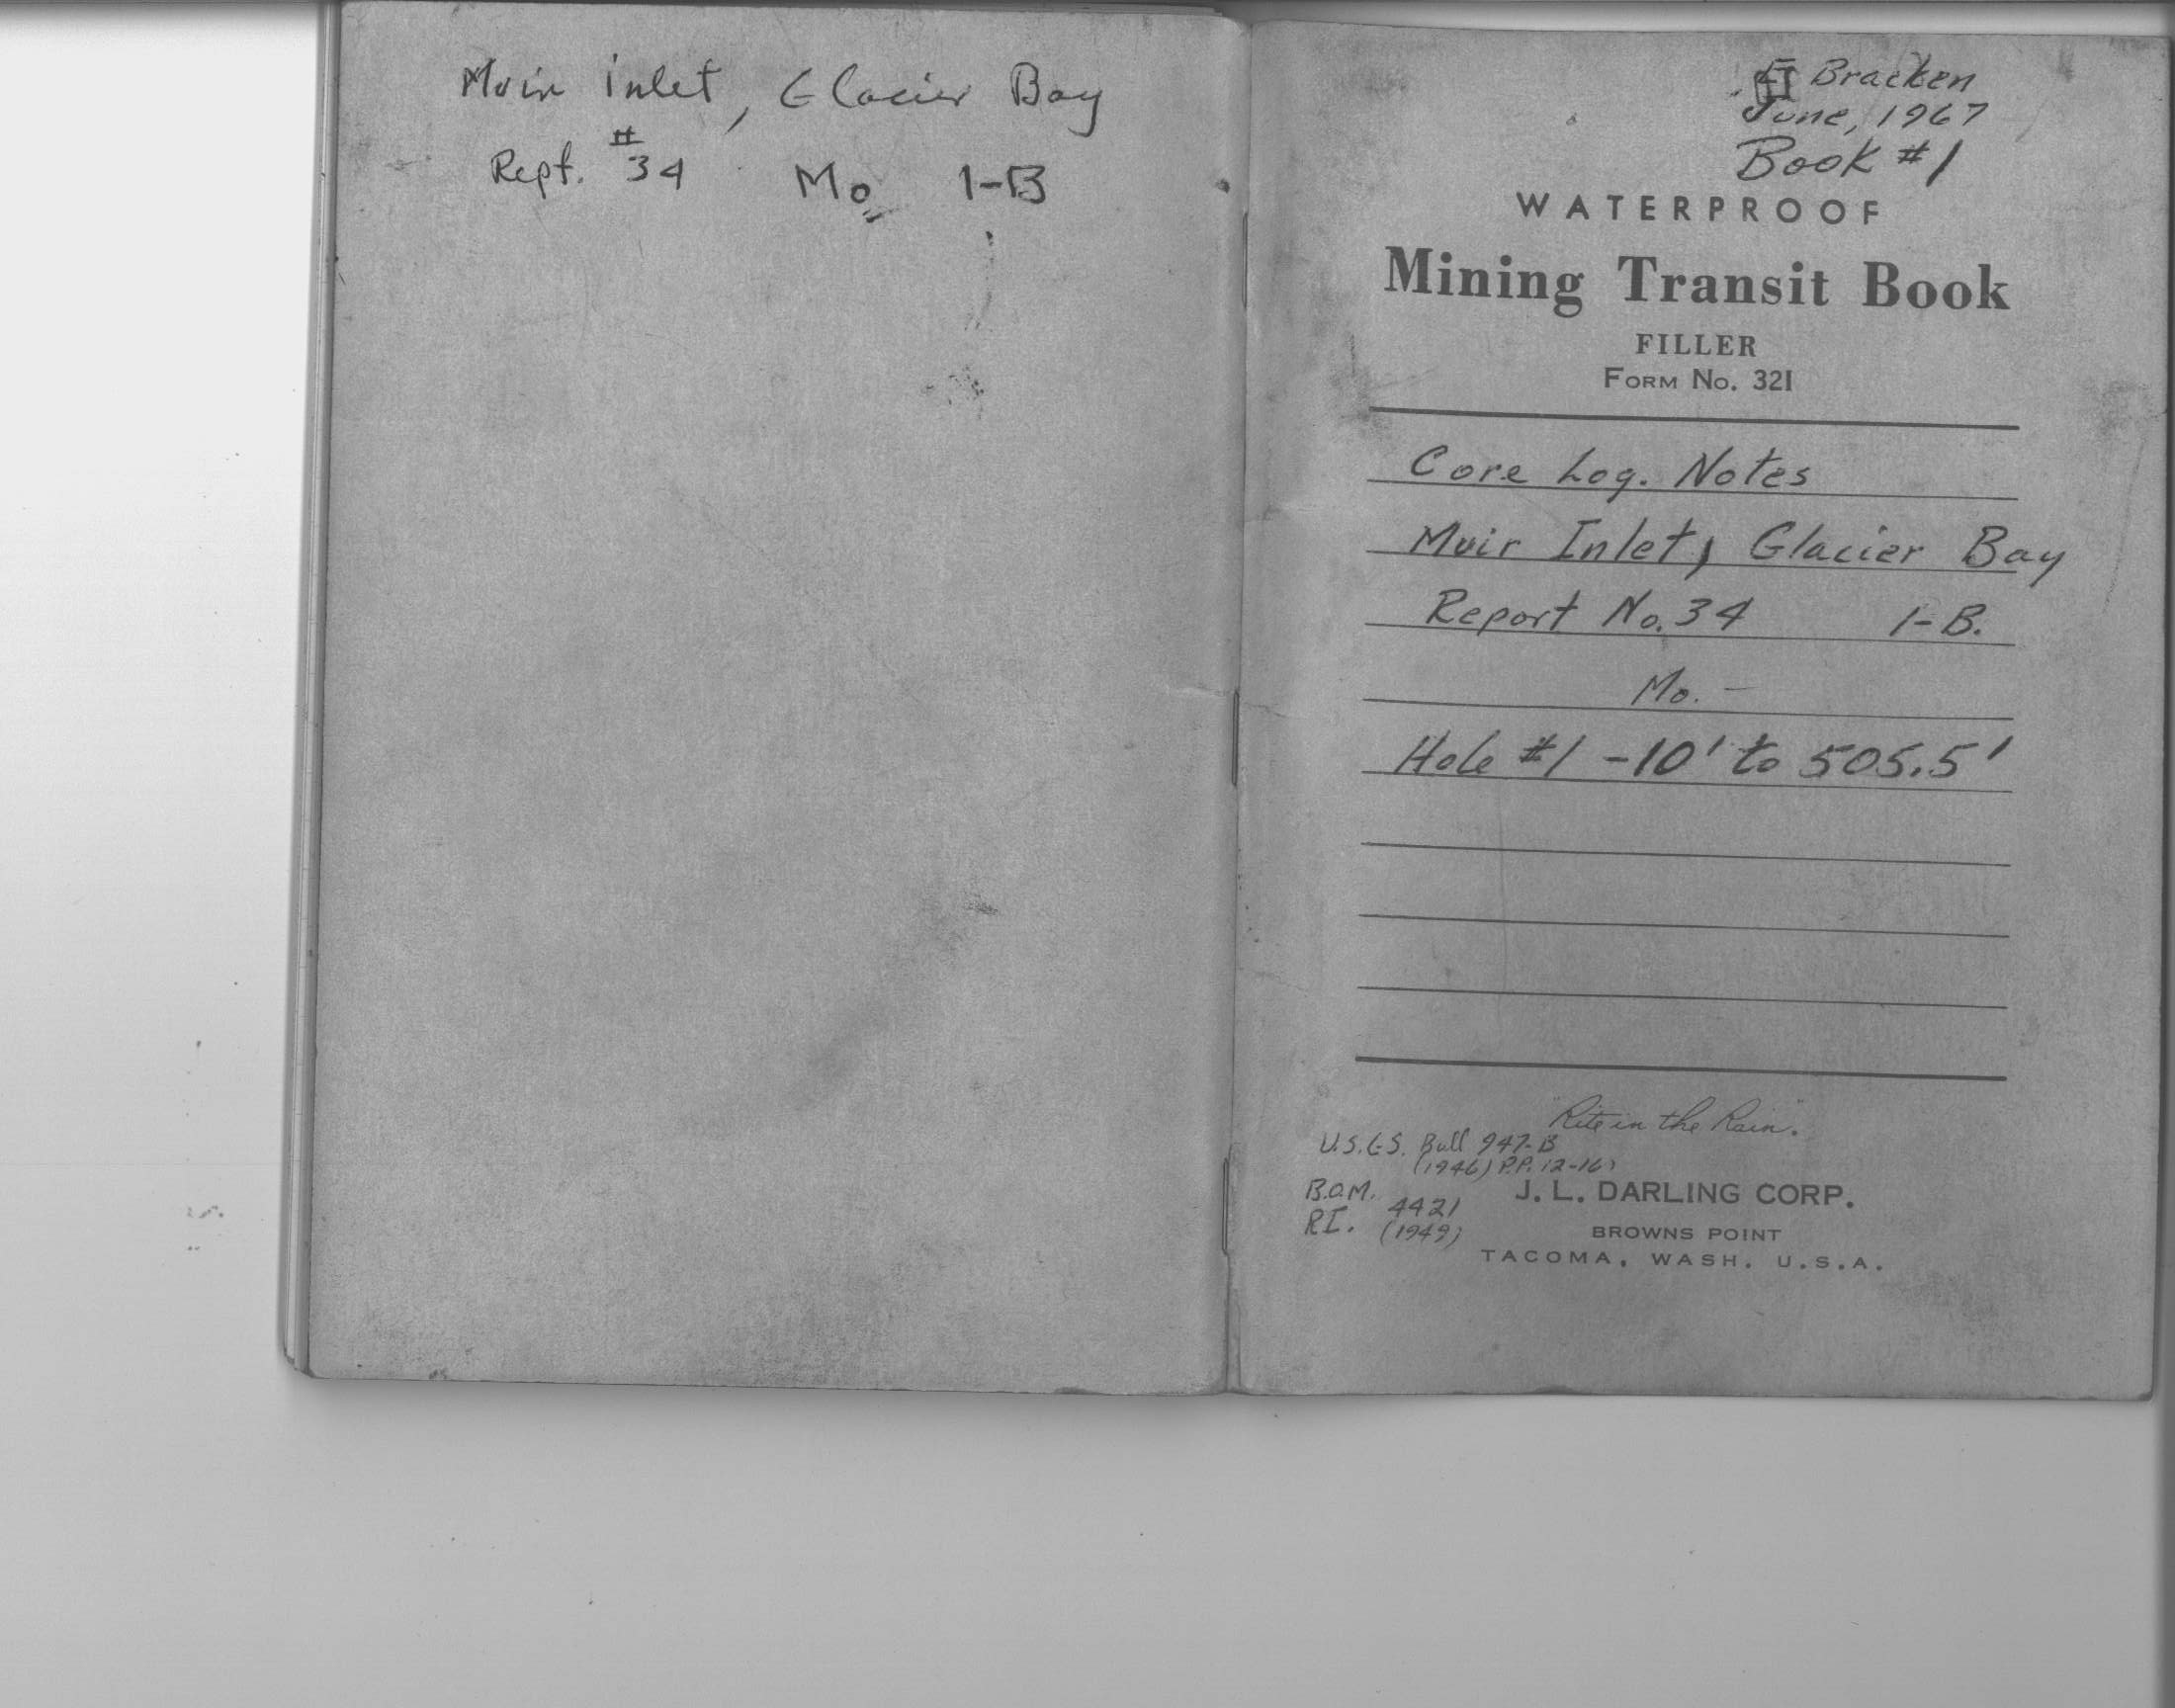 Muir Inlet, Glacier Bay
Rept. #34 Mo. 1-B
Bracken
June, 1967
Book #1
WATERPROOF
Mining Transit Book
FILLER
FORM No. 321
Core Log. Notes
Muir Inlet, Glacier Bay
Report No. 34 1-B.
Mo. -
Hole #1 -10' to 505.5'
"Rite in the Rain".
U.S.G.S. Bull 947-B
(1946) P.P. 12-16
B.O.M.
R.I. 4421
(1949)
J. L. DARLING CORP.
BROWNS POINT
TACOMA, WASH. U.S.A.